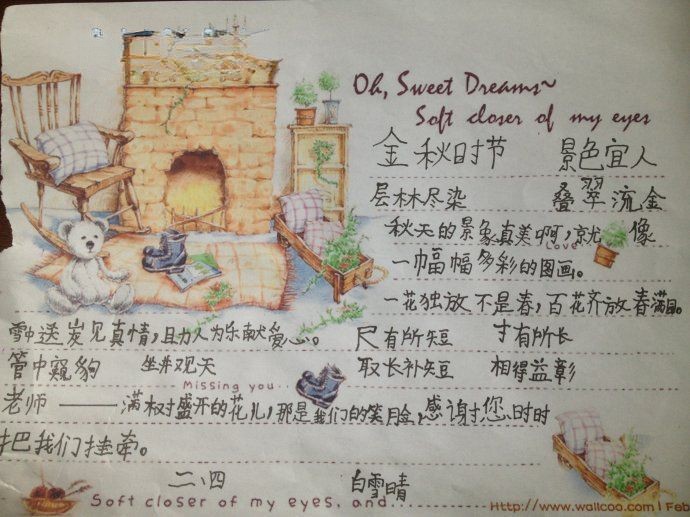 Oh, Sweet Dreams~
Soft closer of my eyes
金秋时节 景色宜人
层林尽染 叠翠流金
秋天的景象真美啊,就像
Love
一幅幅多彩的图画。
一花独放不是春,百花齐放春满园。
雪中送炭见真情,助人为乐献爱心。 尺有所短 寸有所长
管中窥豹 坐井观天 取长补短 相得益彰
Missing you
老师——满树盛开的花儿,那是我们的笑脸,感谢您时时
把我们挂牵。
二、四 白雪晴
Soft closer of my eyes, and...
Http://www.wallcoo.com | Feb